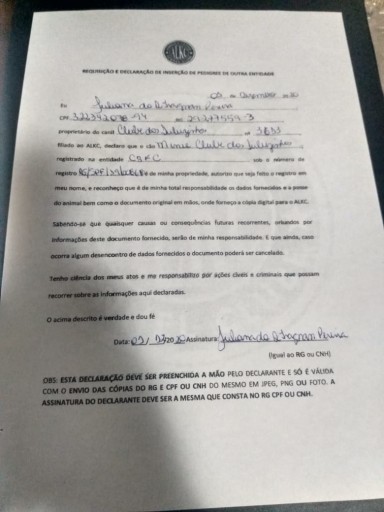 ALKC
REQUISIÇÃO E DECLARAÇÃO DE INSERÇÃO DE PEDIGREE DE OUTRA ENTIDADE
05 de Dezembro de 20
Eu Juliana do
CPF RG
proprietário do canil Clube dos nº 3855
filiado ao ALKC, declaro que o cão Minnie Clube dos
registrado na entidade CBKC sob o número de
registro é de minha propriedade, autorizo que seja feito o registro em
meu nome, e reconheço que é de minha total responsabilidade os dados fornecidos e a posse
do animal bem como o documento original em mãos, onde forneço a cópia digital para o ALKC.
Sabendo-se que quaisquer causas ou consequências futuras recorrentes, oriundos por
informações deste documento fornecido, serão de minha responsabilidade. E que ainda, caso
ocorra algum desencontro de dados fornecidos o documento poderá ser cancelado.
Tenho ciência dos meus atos e me responsabilizo por ações cíveis e criminais que possam
recorrer sobre as informações aqui declaradas.
O acima descrito é verdade e dou fé
Data: 05/12/2020 Assinatura: Juliana do
(Igual ao RG ou CNH)
OBS: ESTA DECLARAÇÃO DEVE SER PREENCHIDA A MÃO PELO DECLARANTE E SÓ É VÁLIDA
COM O ENVIO DAS CÓPIAS DO RG E CPF OU CNH DO MESMO EM JPEG, PNG OU FOTO. A
ASSINATURA DO DECLARANTE DEVE SER A MESMA QUE CONSTA NO RG CPF OU CNH.